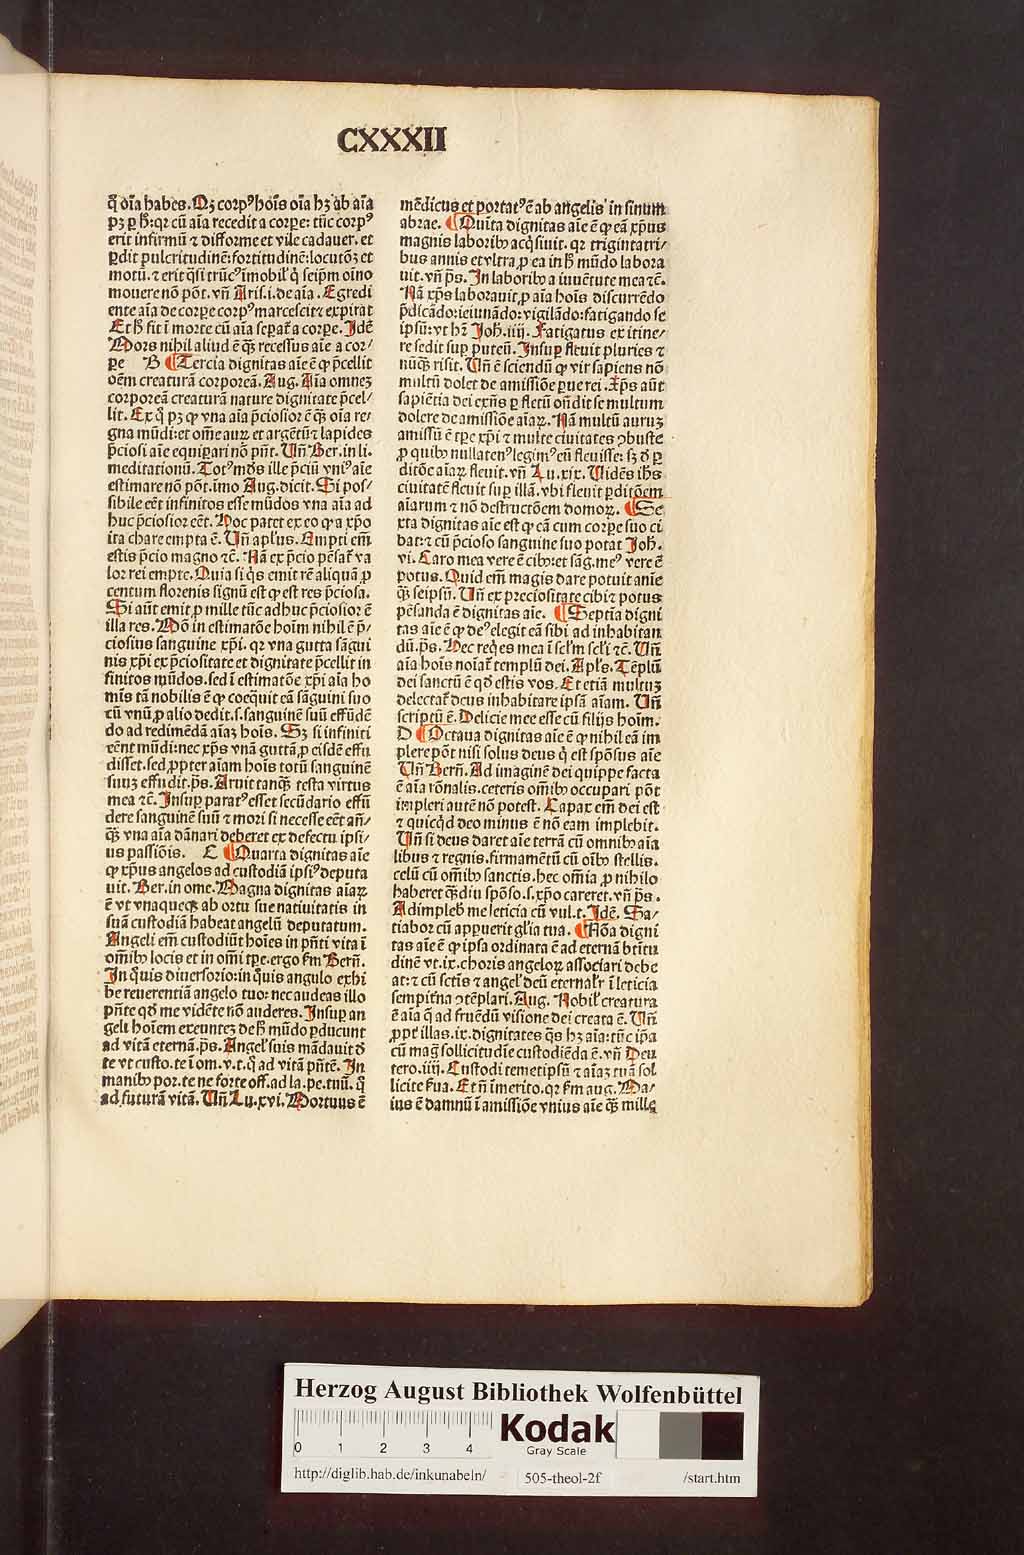 CXXXII
q̃ oīa habes. Qȝ corpꝰ hoīs oīa hȝ ab aīa
pȝ ꝑ ħ: qr cū aīa recedit a corꝑe: tūc corpꝰ
erit infirmū ⁊ difforme et vile cadauer. et
ꝑdit pulcritudinē: fortitudinē: locutōȝ et
motū. ⁊ erit q̄si trūcꝰ īmobil' q̇ seip̄m oīno
mouere nō pōt. vñ Aris. i. de aīa. Egredi
ente aīa de corꝑe corpꝰ marcescit ⁊ expirat
Et ħ fit ī morte cū aīa seꝑat̄ a corꝑe. Idē
Mors nihil aliud ē q̄ȝ recessus aīe a cor⸗
ꝑe B ¶ Tercia dignitas aīe ē ꝙ p̄cellit
oēm creaturā corporeā. Aug. Aīa omneȝ
corporeā creaturā nature dignitate p̄cel⸗
lit. Ex q̇ pȝ ꝙ vna aīa p̄ciosior ē q̄ȝ oīa re⸗
gna mūdi: et om̄e aurȝ et argētū ⁊ lapides
p̄ciosi aīe equiꝑari nō pn̄t. Vñ Ber. in li.
meditationū. Totꝰ mūdꝰ ille p̄ciū vniꝰ aīe
estimare nō pōt. īmo Aug. dicit. Si pos⸗
sibile eēt infinitos esse mūdos vna aīa ad
huc p̄ciosior eēt. Hoc patet ex eo ꝙ a xp̄o
ita chare empta ē. Vñ apl'us. Empti em̄
estis p̄cio magno ⁊c̄. Nā ex p̄cio pēsat̄ va
lor rei empte. Quia si q̇s emit rē aliquā ꝓ
centum florenis signū est ꝙ est res p̄ciosa.
Si aūt emit ꝓ mille tūc adhuc p̄ciosior ē
illa res. Mō in estimatōe hoīm nihil ē p̄⸗
ciosius sanguine xp̄i. qr vna gutta sāgui
nis xp̄i ex p̄ciositate et dignitate p̄cellit in
finitos mūdos. sed ī estimatōe xp̄i aīa ho
mīs tā nobilis ē ꝙ coeq̄uit eā sāguini suo
cū vnū ꝓ alio dedit. s. sanguinē suū effūdē
do ad redimēdā aīaȝ hoīs. Sȝ si infiniti
eēnt mūdi: nec xp̄s vnā guttā ꝓ eisdē effu
disset. sed ꝓpter aīam hoīs totū sanguinē
suuȝ effudit. p̄s. Aruit tanq̄ȝ testa virtus
mea ⁊c̄. Insuꝑ paratꝰ esset secūdario effū
dere sanguinē suū ⁊ mori si necesse eēt añ⸗
q̄ȝ vna aīa dānari deberet ex defectu ipsi⸗
us passiōis. C ¶ Quarta dignitas aīe
ē ꝙ xp̄us angelos ad custodiā ipsiꝰ deputa
uit. Ber. in ome. Magna dignitas aīarȝ
ē vt vnaqueqȝ ab ortu sue natiuitatis in
suā custodiā habeat angelū deputatum.
Angeli em̄ custodiūt hoīes in pn̄ti vita ī
om̄ibꝰ locis et in om̄i tꝑe. ergo ẜm Berñ.
In q̇uis diuersorio: in q̇uis angulo exhi
be reuerentiā angelo tuo: nec audeas illo
pn̄te qd̄ me vidēte nō auderes. Insuꝑ an
geli hoīem exeunteȝ de ħ mūdo ꝑducunt
ad vitā eternā. p̄s. Angel' suis mādauit d̄
te vt custo. te ī om. v. t. q̄ ad vitā pn̄tē. In
manibꝰ por. te ne forte off. ad la. pe. tuū. q̄
ad futurā vitā. Vñ Lu. xvi. Mortuus ē
mēdicus et portatꝰ ē ab angelis in sinum
abrae. ¶ Quīta dignitas aīe ē ꝙ eā xp̄us
magnis laboribꝰ acq̇siuit. qr trigintatri⸗
bus annis et vltra ꝓ ea in ħ mūdo labora
uit. vñ p̄s. In laboribꝰ a iuuētute mea ⁊c̄.
Nā xp̄s laborauit ꝓ aīa hoīs discurrēdo
p̄dicādo: ieiunādo: vigilādo: fatigando se
ipsū: vt hr̄ Joh̄. iiij. Fatigatus ex itine⸗
re sedit suꝑ puteū. Insuꝑ fleuit pluries ⁊
nūq̄ȝ risit. Vñ ē sciendū ꝙ vir sapiens nō
multū dolet de amissiōe ꝑue rei. Xp̄s aūt
sapiētia dei exn̄s ꝑ fletū on̄dit se multum
dolere de amissiōe aīarȝ. Nā multū auruȝ
amissū ē tꝑe xp̄i ⁊ multe ciuitates ꝯbuste
ꝓ quibꝰ nullatenꝰ legimꝰ eū fleuisse: sȝ d̄ ꝑ
ditōe aīarȝ fleuit. vñ Lu. xix. Vidēs ih̄s
ciuitatē fleuit suꝑ illā. vbi fleuit ꝑditōem
aīarum ⁊ nō destructōem domorȝ. ¶ Se
xta dignitas aīe est ꝙ eā cum corꝑe suo ci
bat: ⁊ cū p̄cioso sanguine suo potat Joh̄.
vi. Caro mea vere ē cibꝰ: et sāg. meꝰ vere ē
potus. Quid em̄ magis dare potuit anīe
q̄ȝ seipsū. Vñ ex preciositate cibi ⁊ potus
pēsanda ē dignitas aīe. ¶ Septīa digni
tas aīe ē ꝙ deꝰ elegit eā sibi ad inhabitan
dū. p̄s. Hec req̇es mea ī scl'm scl'i ⁊c̄. Vñ
aīa hoīs noīat̄ templū dei. Apl's. Tēplū
dei sanctū ē qd̄ estis vos. Et etiā multuȝ
delectat̄ deus inhabitare ipsā aīam. Vñ
scriptū ē. Delicie mee esse cū filijs hoīm.
D ¶ Octaua dignitas aīe ē ꝙ nihil eā im
plere pōt nisi solus deus q̇ est spōsus aīe
Vñ Berñ. Ad imaginē dei quippe facta
ē aīa rōnalis. ceteris om̄ibꝰ occupari pōt
impleri autē nō potest. Capax em̄ dei est
⁊ quicq̇d deo minus ē nō eam implebit.
Vñ si deus daret aīe terrā cū omnibꝰ aīa
libus ⁊ regnis. firmamētū cū oībꝰ stellis.
celū cū om̄ibꝰ sanctis. hec om̄ia ꝓ nihilo
haberet q̄ȝdiu spōso. s. xp̄o careret. vñ p̄s.
Adimpleb̄ me leticia cū vul. t. Idē. Sa⸗
tiabor cū apꝑuerit gl'ia tua. ¶ Nōa digni
tas aīe ē ꝙ ipsa ordinata ē ad eternā btītu
dinē vt. ix. choris angelorȝ associari debe
at: ⁊ cū sctīs ⁊ angel' deū eternal'r ī leticia
sempit̄na ꝯtēplari. Aug. Nobil' creatura
ē aīa q̄ ad fruēdū visione dei creata ē. Vñ
ꝓpt' illas. ix. dignitates q̄s hȝ aīa: tūc ip̄a
cū maḡ sollicitudīe custodiēda ē. vñ Deu
tero. iiij. Custodi temetipsū ⁊ aīaȝ tuā sol
licite ẜua. Et n̄ īmerito. qr ẜm aug. Ma⸗
ius ē damnū ī amissiōe vnius aīe q̄ȝ mille
Herzog August Bibliothek Wolfenbüttel
0 1 2 3 4
Kodak
Gray Scale
http://diglib.hab.de/inkunabeln/ 505-theol-2f /start.htm